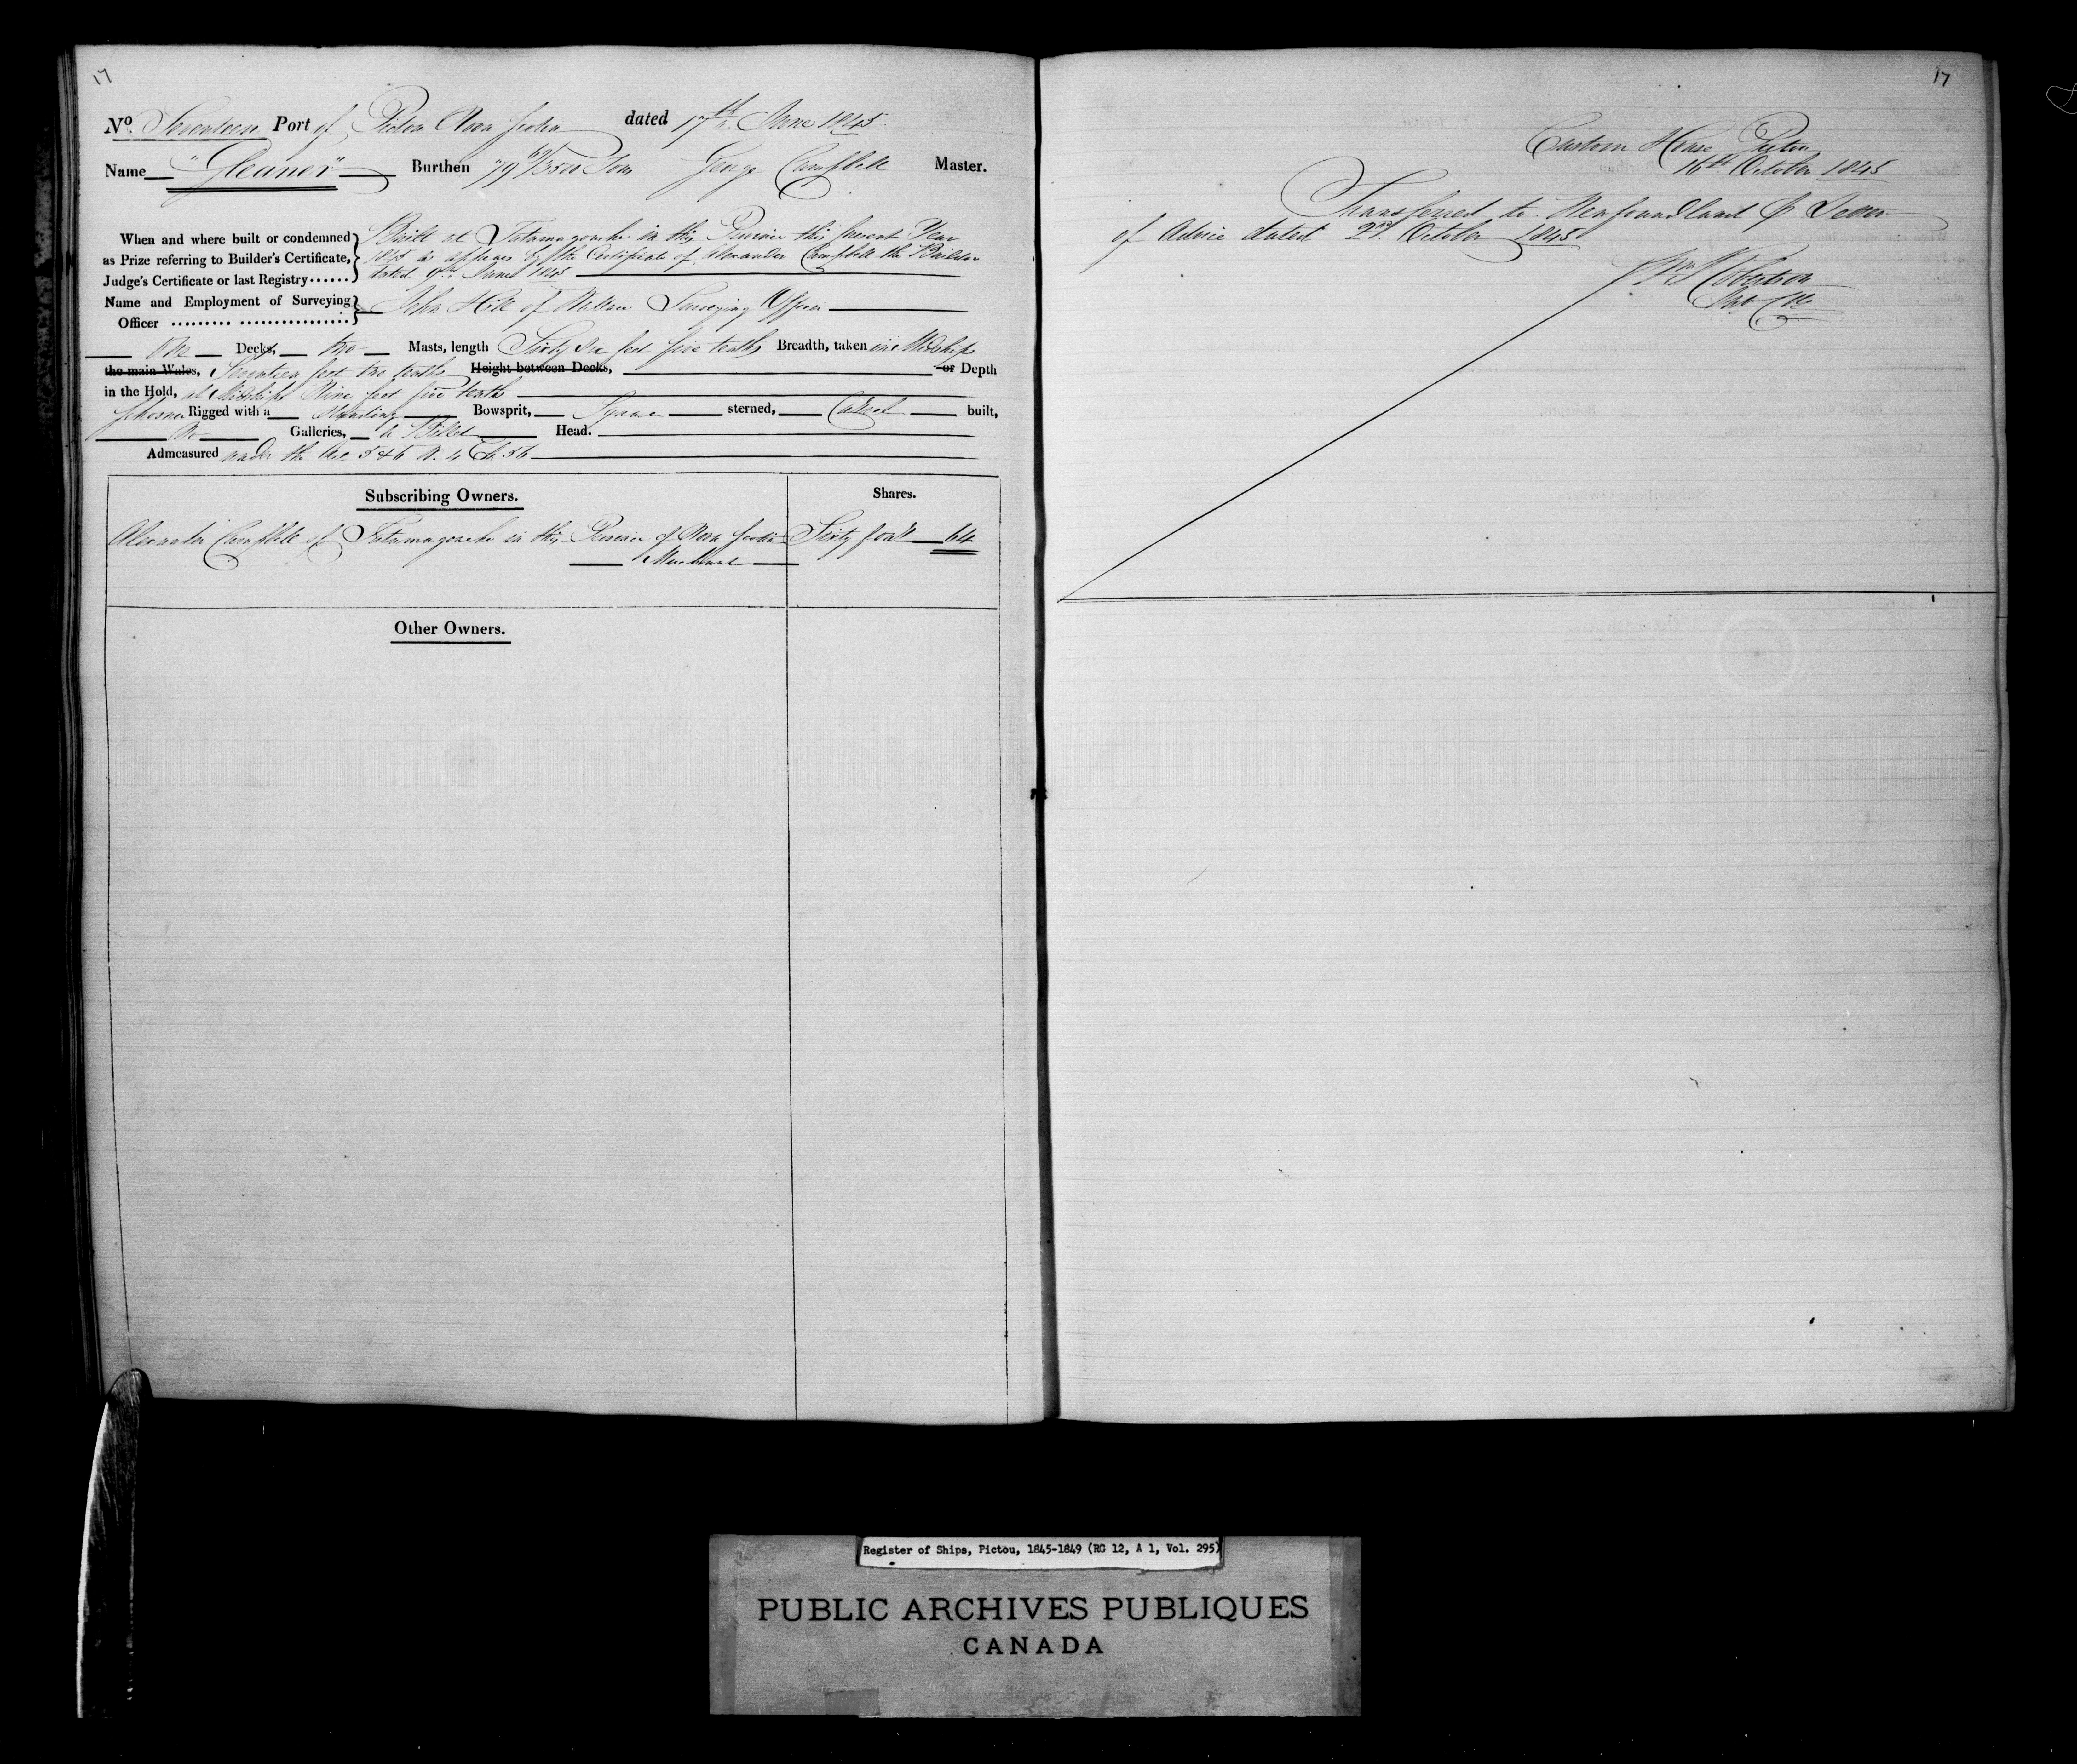 17
No. Seventeen Port of Pictou Nova Scotia dated 17th June 1845
Name "Gleaner" Burthen 79 Tons George Campbell Master.
When and where built or condemned as Prize referring to Builder's Certificate, Judge's Certificate or last Registry......
Built at Tatamagouche in this Province this present Year
1845 as appears by the Certificate of Alexander Campbell the Builder
dated 9th June 1845
Name and Employment of Surveying Officer ......... ................ John Hill of Wallace Surveying Officer
One Decks, two Masts, length Sixty six feet five tenths Breadth, taken in Midships
the main Wales, Seventeen feet two tenths Height between Decks, or Depth
in the Hold, at Midships Nine feet five tenths
Schooner Rigged with a Standing Bowsprit, Square sterned, Carvel built,
No Galleries, a Billet Head.
Admeasured under the Act 5 & 6 W. 4 Ch. 56
Subscribing Owners. Shares.
Alexander Campbell of Tatamagouche in this Province of Nova Scotia Sixty four 64
Merchant
Other Owners.
17
Custom House Pictou
16th October 1845
Transferred to Newfoundland P Letter
of Advice dated 2nd October 1845
Register of Ships, Pictou, 1845-1849 (RG 12, A 1, Vol. 295)
PUBLIC ARCHIVES PUBLIQUES
CANADA